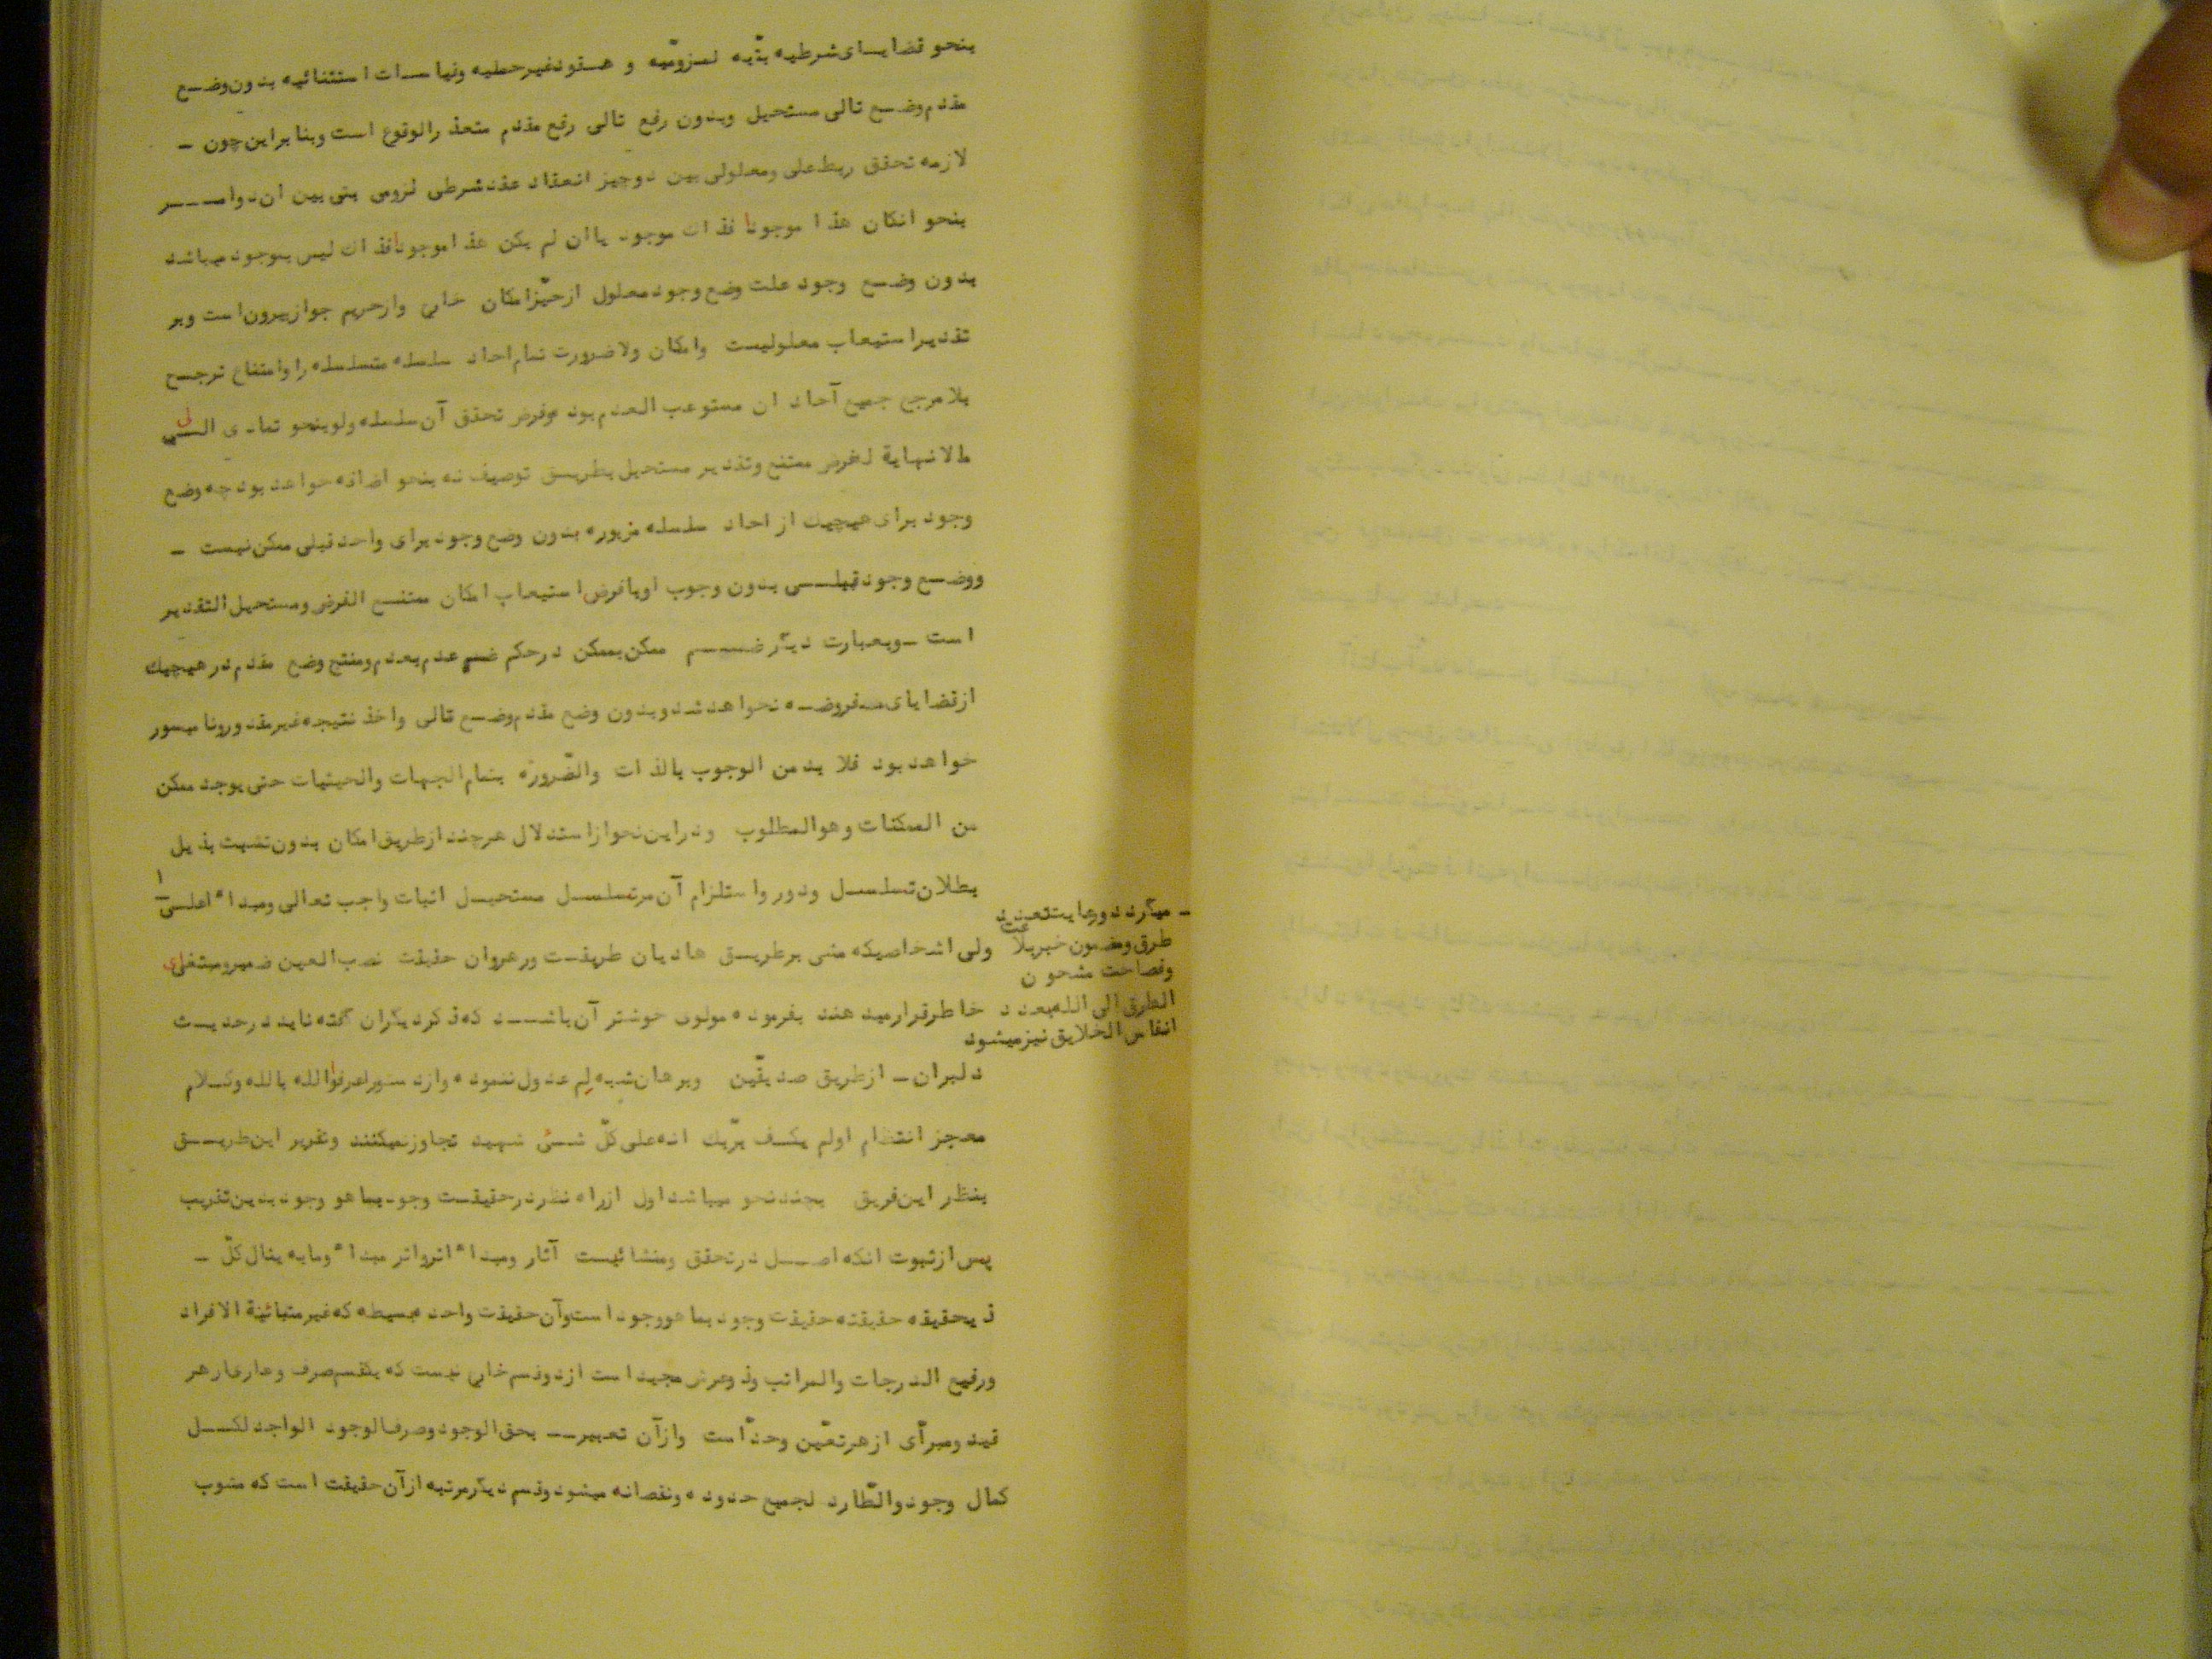 بنحو قضایـای شرطیه بتّیه لـزومّیه و عـقود غیرحملیه وقیاسـات استثنائیه بدون وضـع
مقدم وضـع تالی مستحیل وبدون رفع تالی رفع مقدم متعذرالوقوع است وبنابراین چون –
لازمه تحقق ربط علی ومعلولی بین دوچیز انعقاد عقد شرطی لزومی بتی بین آن دوامـــر
بنحو انکان هذا موجودا فذاك موجود یا ان لم یکن هذا موجودا فذاك لیس بموجود میباشد
بدون وضـع وجود علت وضع وجود معلول ازحیّزامکان خارج وازحریم جوازبیرون است وبر
تقدیراستیعاب معلولیست وامکان ولاضرورت تمام احاد سلسله متسلسله را وامتناع ترجـح
بلامرجح جمیع آحاد ان مستوعب العدم بود وفرض تحقق آن سلسله ولوبنحو تمادی الـی
مالانهایة لـفرض ممتنع وتقدیر مستحیل بطریـق توصیف نه بنحو اضافه خواهد بود چه وضع
وجود برای هیچیك از احاد سلسله مزبوره بدون وضع وجود برای واحد قبلی ممکن نیست –
ووضـع وجود قبلـی بدون وجوب اوبافرض استیعاب امکان ممتنـع الفرض ومستحیل التقدیر
است – وبعبارت دیگر ضـــم ممکن بممکن درحکم ضم عدم بعدم ومنتج وضع مقدم درهیچیك
ازقضایای مـفروضـه نخواهد شد وبدون وضع مقدم وضـع تالی واخذ نتیجه غیرمقدور ونامیسور
خواهد بود فلا بد من الوجوب بالذات والضّرورة بتمام الجهات والحیثیات حتی یوجد ممکن
من الممکنات وهوالمطلوب ودراین نحوازاستدلال هرچند ازطریق امکان بدون تشبث بذیل
بطلان تسلسـل ودور واستلزام آن مرتسلسـل مستحیـل اثبات واجب تعالی ومبداء اعلـی ۱
– میگردد ورعایت تعدد
طرق ومضمون خبر بلاغت
وفصاحت مشحون
الطرق الی الله بعدد
انفاس الخلایق نیز میشود
ولی اشخاصیکه مشی برطریـق هادیان طریقـت ورهروان حقیقت نصب العین ضمیر
خاطرقرارمیدهند بفرموده مولوی خوشتر آن باشـــد که ذکر دیگران گفته ناید درحدیـث
دلبران – ازطریق صدیقّین وبرهان شبه لِم عدول ننموده وازدستوراعرفوا الله بالله وکـلام
معجز انتظام اولم یکـف بربّك انه علی کلّ شـیُ شهید تجاوزنمیکنند وتقریر این طریــق
بنظر این فریق بچند نحو میباشد اول ازراه نظردرحقیقـت وجود بما هو وجود بدین تقریب
پس ازثبوت انکه اصـــل درتحقق ومنشائیست آثار ومبداء اثرواثر مبداء ومابه ینال کلّ –
ذیحقیقه حقیقته حقیقت وجود بما هووجود است وآن حقیقت واحده بسیطه که غیرمتبائنة الافراد
ورفیع الدرجات والمراتب وذوعرش مجید است ازدوقسم خارج نیست که یکقسم صرف وعاری ازهر
قید ومبرآّی ازهرتعیّن وحدّاست وازآن تعبیرــ بحق الوجود وصرف الوجود الواجد لکــل
کمال وجود والطّارد لجمیع حدوده ونقصانه میشود وقسم دیگرمرتبه ازآن حقیقت است که مشوب